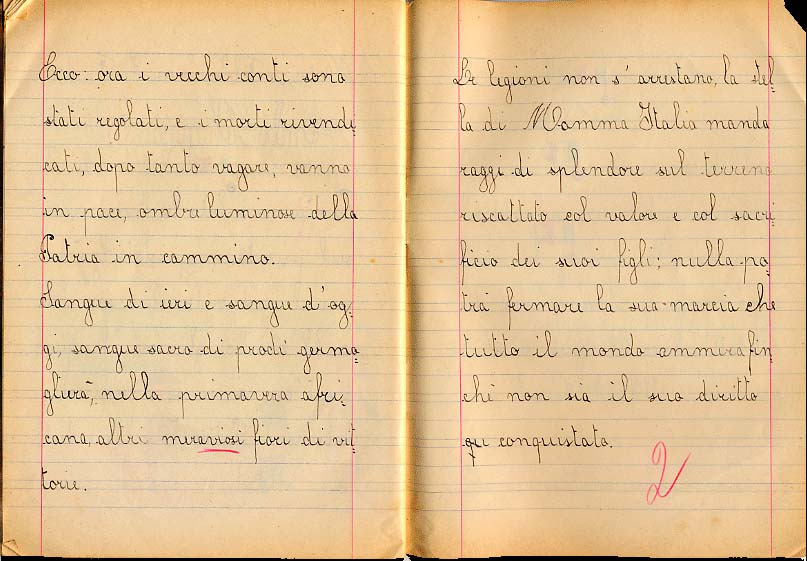 Ecco: ora i vecchi conti sono
stati regolati, e i morti rivendi
cati, dopo tanto vagare, vanno
in pace, ombre luminose della
Patria in cammino.
Sangue di ieri e sangue d'og-
gi, sangue sacro di prodi germo-
glierà, nella primavera afri-
cana, altri meraviosi fiori di vit-
torie.
Le legioni non s'arrestano, la stel-
la di Mamma Italia manda
raggi di splendore sul terreno
riscattato col valore e col sacri
ficio dei suoi figli; nulla po-
trà fermare la sua marcia che
tutto il mondo ammira fin
chè non sia il suo diritto
conquistato.
2